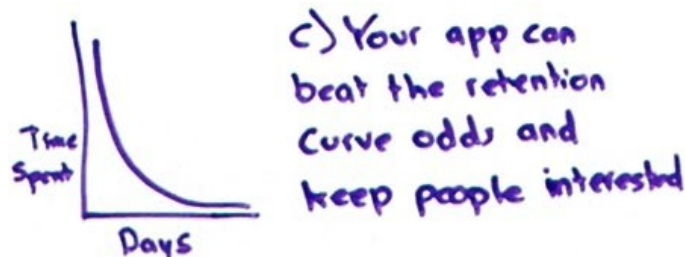 Time
Spent
Days
c) Your app can
beat the retention
curve odds and
keep people interested